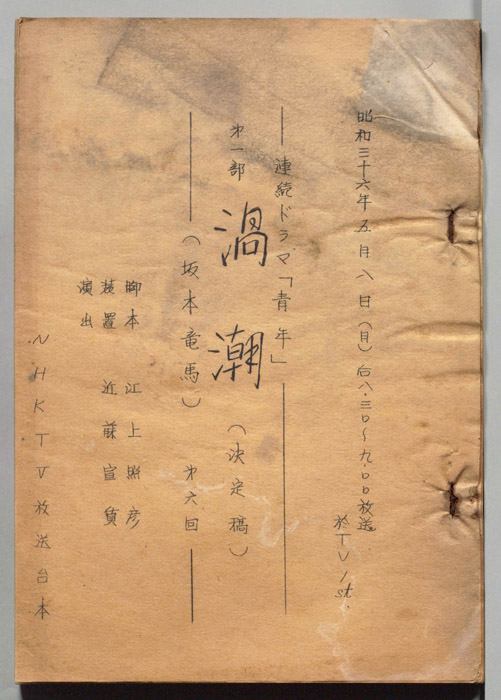 昭和三十六年五月八日(月)后八.三〇〜九.〇〇放送
於TV/st.
連続ドラマ「青年」
才一部 渦潮 (決定稿)
(坂本竜馬) 才六回
脚本 江上照彦
装置 近藤宣
演出
NHKTV放送台本